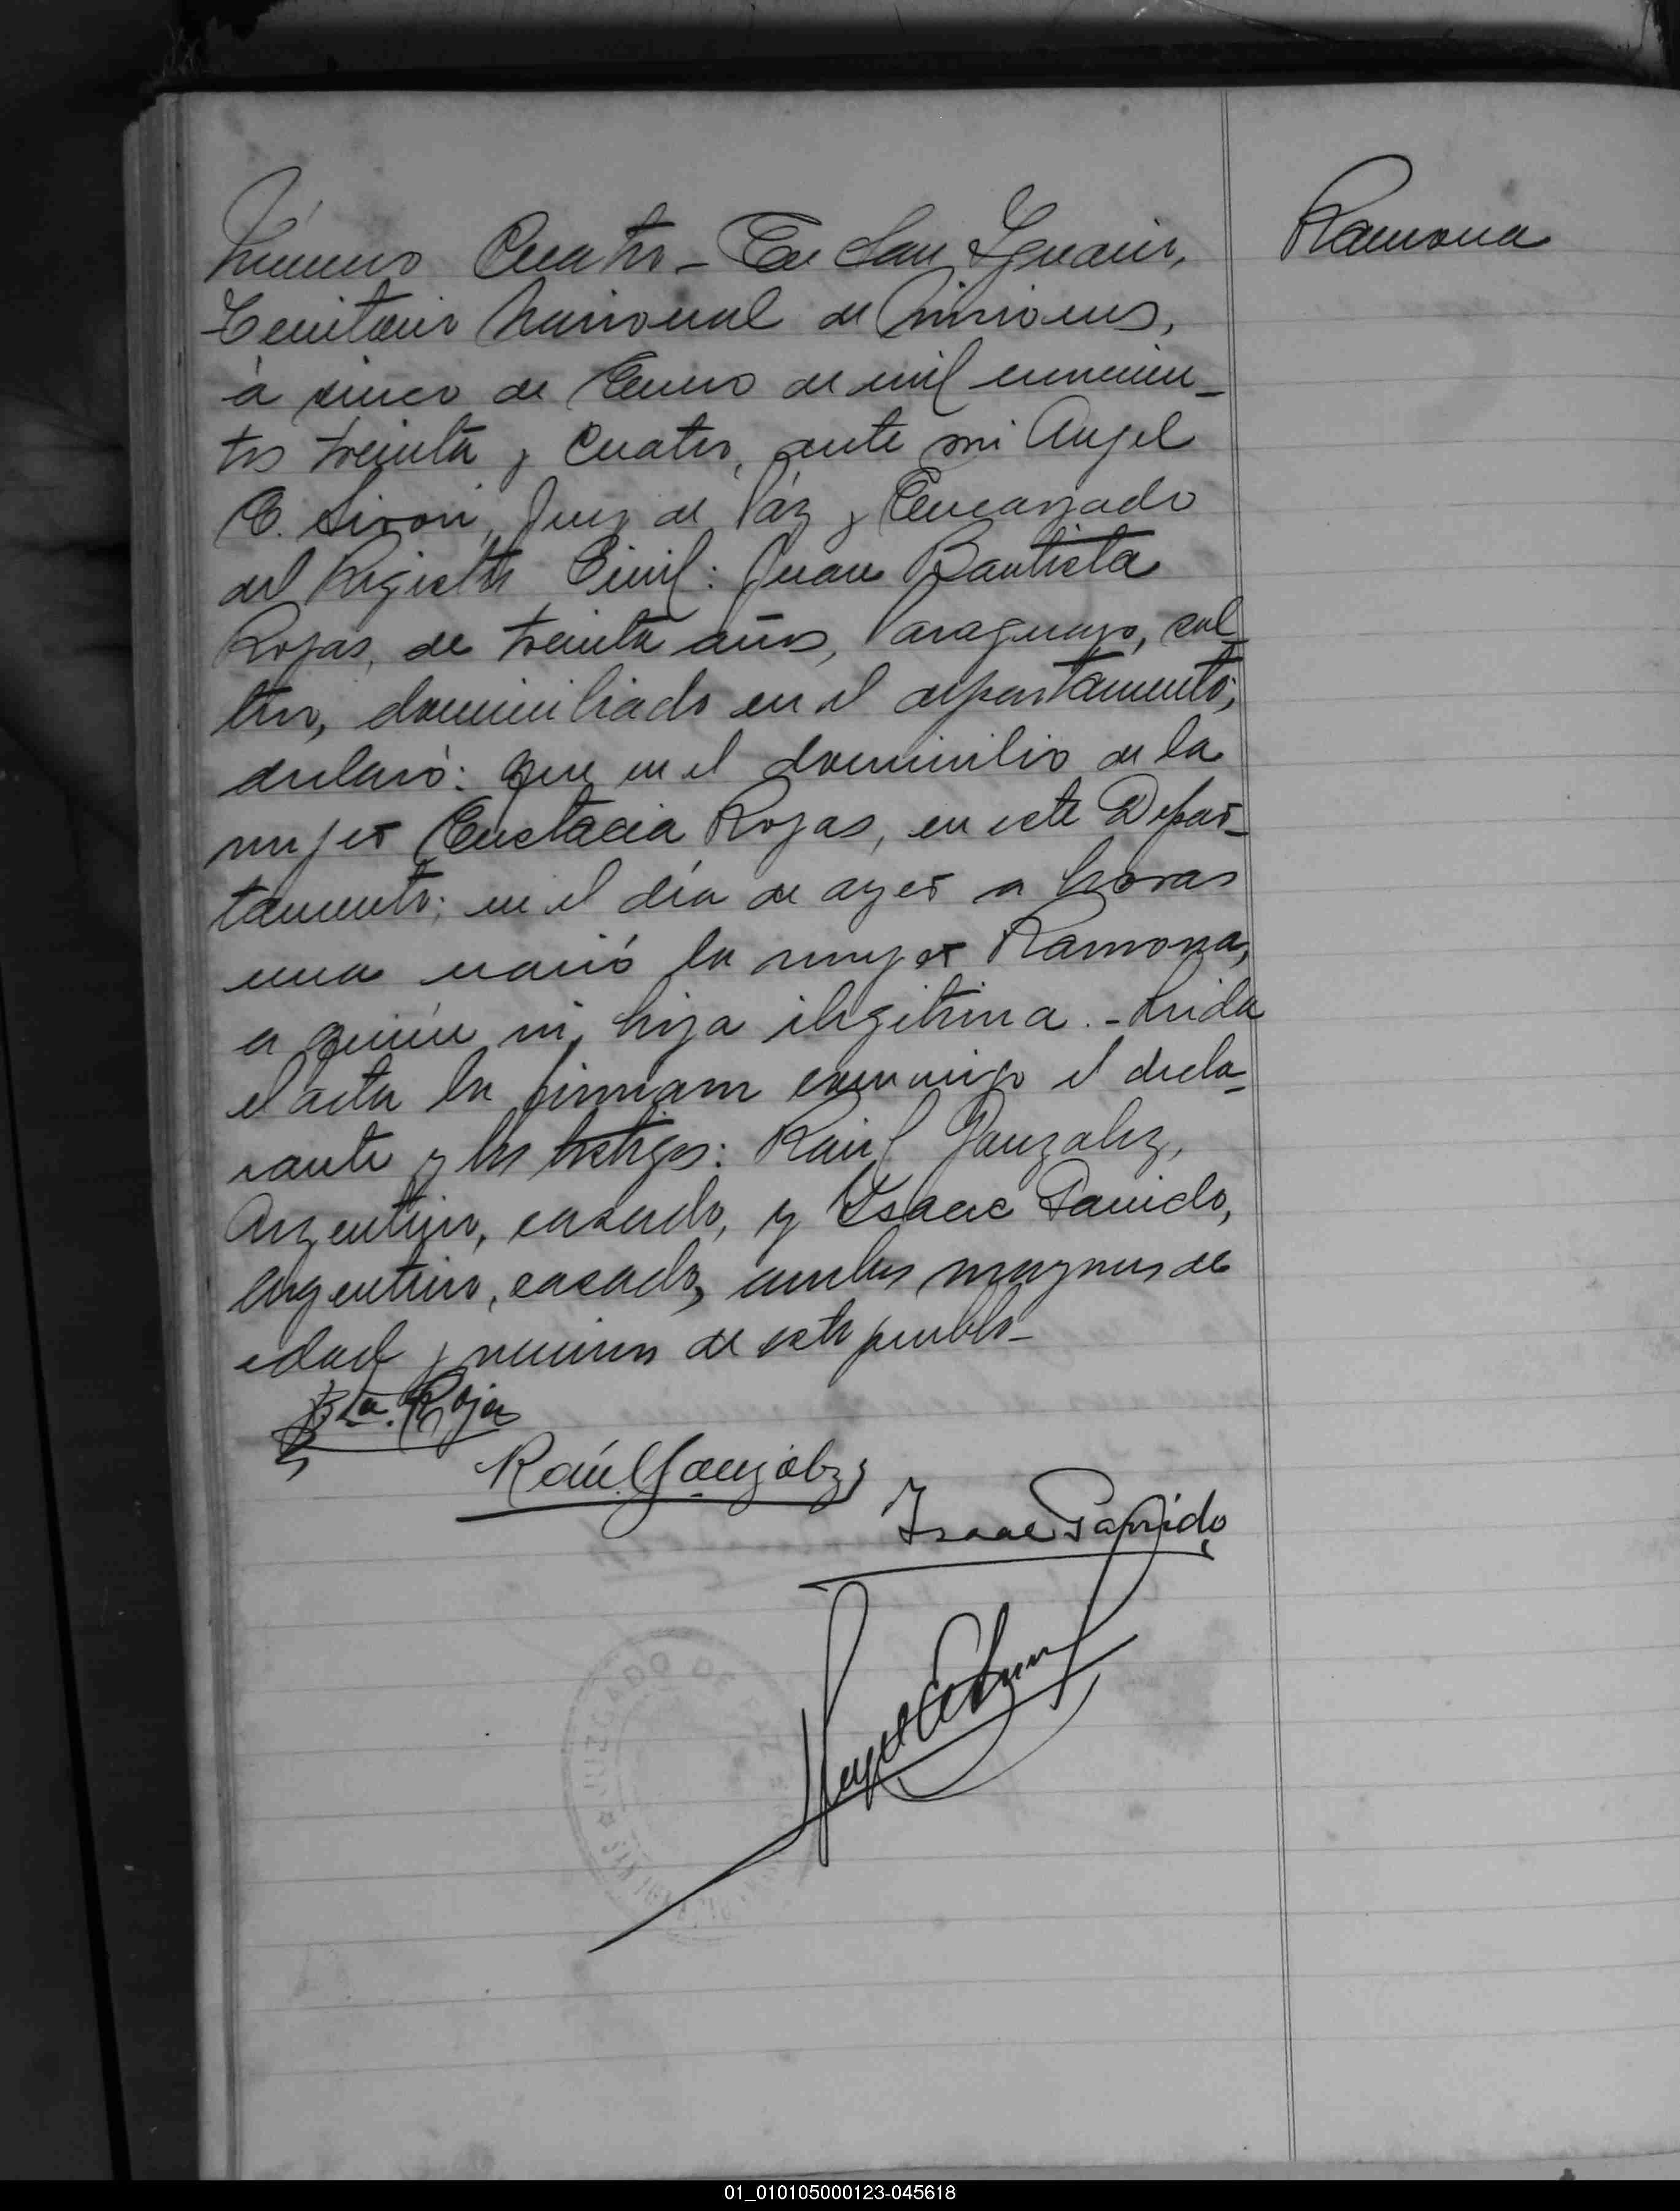 Número Cuatro - En San Ignacio,
Ramona
Territorio Nacional de Misiones,
a cinco de Enero de mil novecien-
tos treinta y cuatro, ante mi Angel
E. , Juez de Páz y Encargado
del Registro Civil: Juan Bautista
Rojas, de treinta años, Paraguayo, sol-
tero, domiciliado en el departamento;
declaró: que en el domicilio de la
mujer Eustacia Rojas, en este Depar-
tamento; en el día de ayer a horas
una nació la mujer Ramona,
a quién , hija ilegitima. - Leida
el acta la firmam conmigo el decla-
rante y los testigos: Raúl Gonzalez,
Argentino, casado, y Isaac Parrido,
Argentino, casado, ambos mayores de
edad y vecinos de este pueblo -
Bta. Rojas
Raúl Gonzalez
Isaac
JUZGADO DE PAZ
01_010105000123-045618